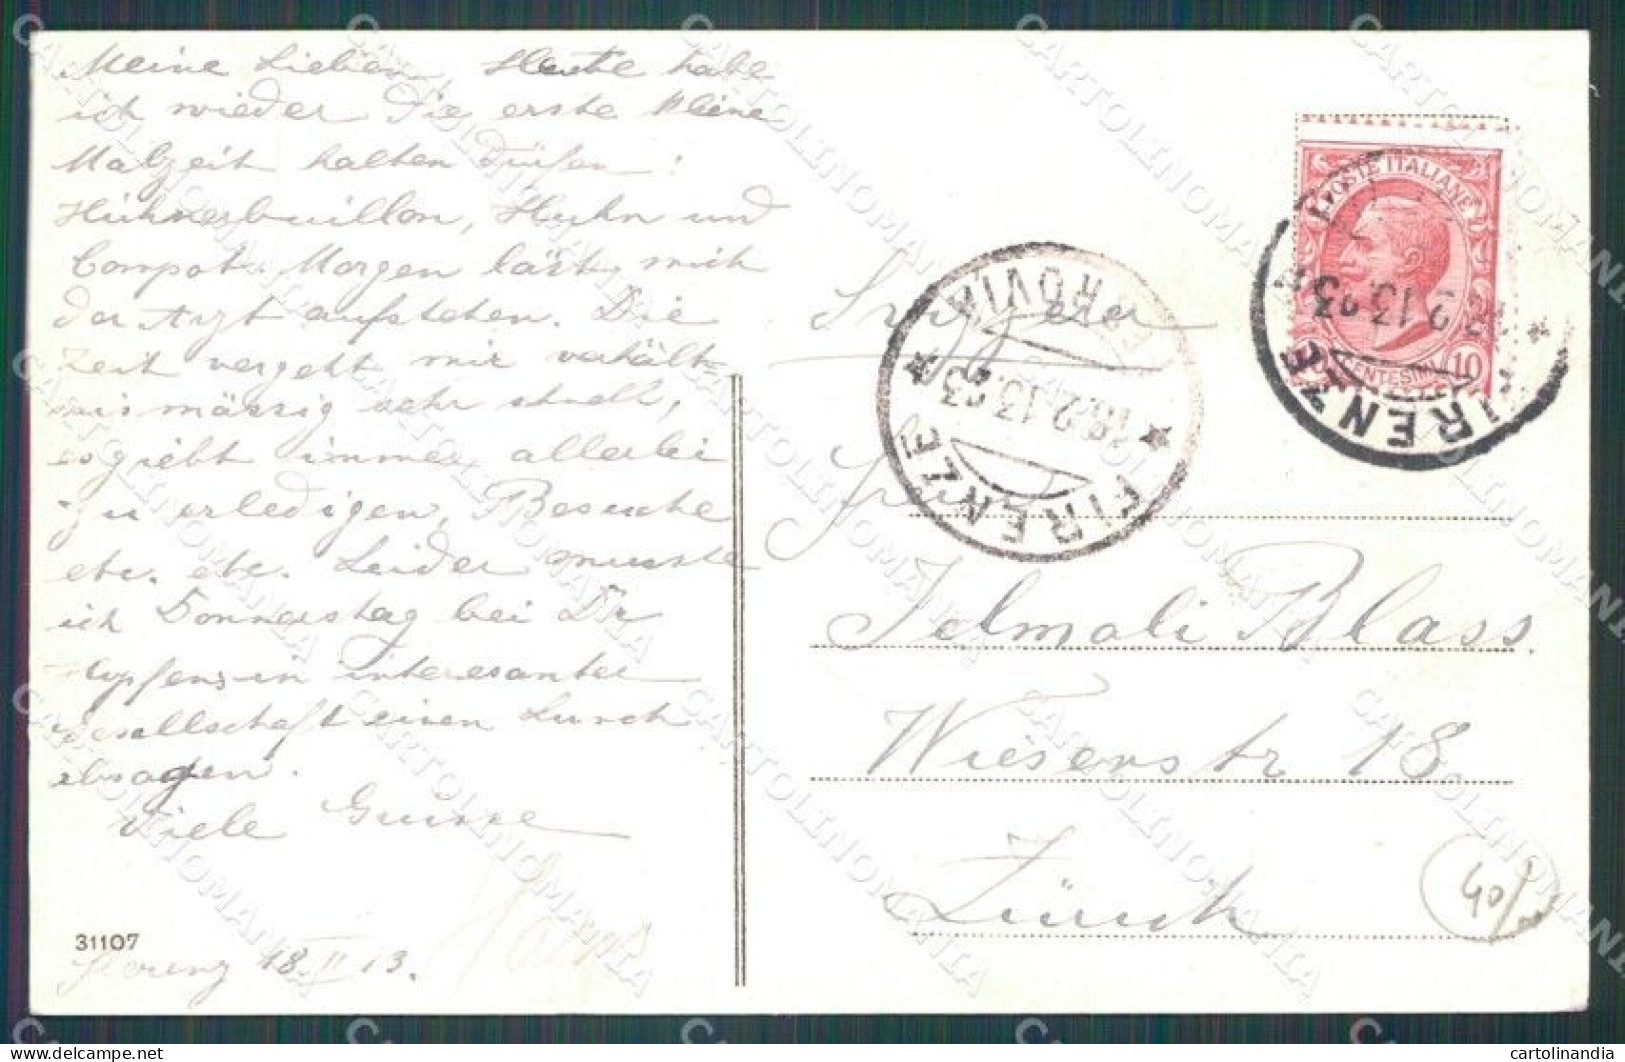 Meine Lieben, Heute habe
ich wieder die erste kleine
Malzeit halten dürfen:
Hühnerbuillon, Huhn und
Compot. Morgen läst mich
der Arzt aufstehen. Die
Zeit vergeht mir verhält-
nis mässig sehr schnell,
es giebt immer allerlei
zu erledigen, Besuche
etc. etc. Leider musste
ich Donnerstag bei Dr
in interesanter
Gesellschaft einen Lunch
absagen.
Viele Grüsse
31107
Florenz 18. II 13.
POSTE ITALIANE
CENTESIMI 10
FIRENZE
13.23
FIRENZE
FERROVIA
18.2.13.23
Svizzera
Jelmoli Blass
Wiesenstr 18.
Zürich
40/
CARTOLINOMANIA
cartolinandia